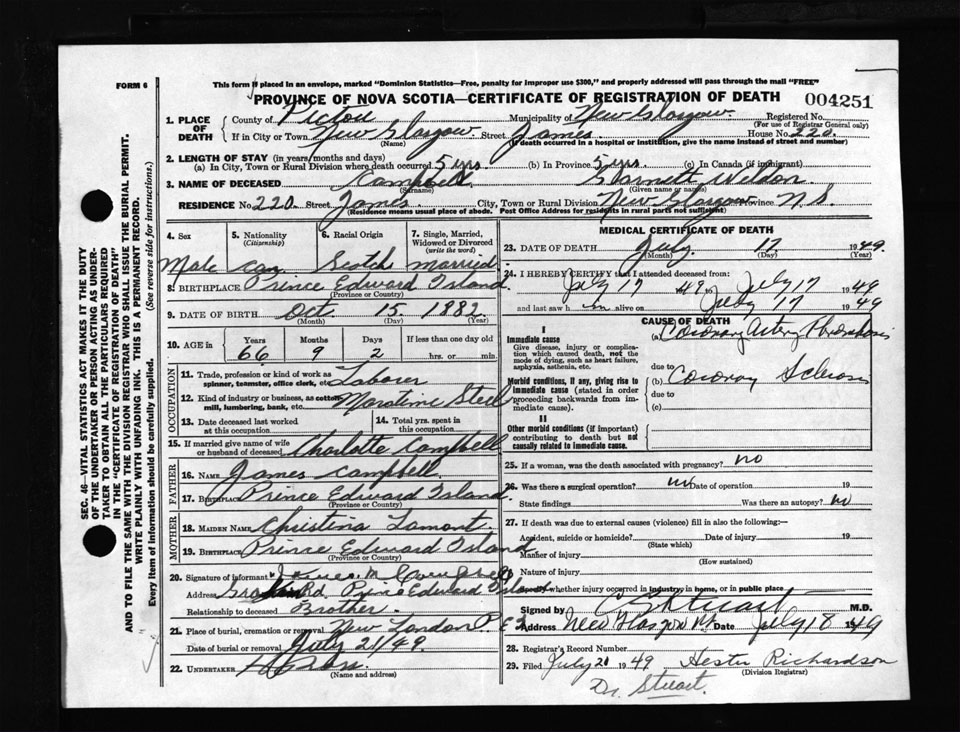 FORM 6
This form if placed in an envelope, marked "Dominion Statistics—Free, penalty for improper use $300," and properly addressed will pass through the mail "FREE"
PROVINCE OF NOVA SCOTIA—CERTIFICATE OF REGISTRATION OF DEATH 004251
1. PLACE OF DEATH County of Pictou Municipality of New Glasgow Registered No.
(For use of Registrar General only)
If in City or Town New Glasgow Street James House No. 220
(Name) (If death occurred in a hospital or institution, give the name instead of street and number)
2. LENGTH OF STAY (in years, months and days)
(a) In City, Town or Rural Division where death occurred 5 yrs. (b) In Province 5 yrs (c) In Canada (if immigrant)
3. NAME OF DECEASED Campbell Garnett Weldon
(Surname) (Given name or names)
RESIDENCE No. 220 Street James City, Town or Rural Division New Glasgow Province N.S.
(Residence means usual place of abode. Post Office Address for residents in rural parts not sufficient)
4. Sex Male
5. Nationality (Citizenship) Can.
6. Racial Origin Scotch
7. Single, Married, Widowed or Divorced (write the word) married
8. BIRTHPLACE Prince Edward Island
(Province or Country)
9. DATE OF BIRTH Oct. 15 1882
(Month) (Day) (Year)
10. AGE in Years Months Days If less than one day old
66 9 2 hrs. or min.
OCCUPATION
11. Trade, profession or kind of work as spinner, teamster, office clerk, etc. Laborer
12. Kind of industry or business, as cotton mill, lumbering, bank, etc. Maratime Steel
13. Date deceased last worked at this occupation
14. Total yrs. spent in this occupation
15. If married give name of wife or husband of deceased Charlotte Campbell
FATHER
16. NAME James Campbell
17. BIRTHPLACE Prince Edward Island
(Province or Country)
MOTHER
18. MAIDEN NAME Christina Lamont
19. BIRTHPLACE Prince Edward Island
(Province or Country)
20. Signature of informant James M Campbell
Address Prince Edward Island
Relationship to deceased Brother
21. Place of burial, cremation or removal New London P.E.I
Date of burial or removal July 21/49
22. UNDERTAKER
(Name and address)
MEDICAL CERTIFICATE OF DEATH
23. DATE OF DEATH July 17 1949
(Month) (Day) (Year)
24. I HEREBY CERTIFY that I attended deceased from:
July 17 1949 to July 17 1949
and last saw h im alive on July 17 1949
CAUSE OF DEATH
I
Immediate cause
Give disease, injury or complication which caused death, not the mode of dying, such as heart failure, asphyxia, asthenia, etc.
(a) Coronary Artery Thrombosis
due to
Morbid conditions, if any, giving rise to immediate cause (stated in order proceeding backwards from immediate cause).
(b) Coronary Sclerosis
due to
(c)
II
Other morbid conditions (if important) contributing to death but not causally related to immediate cause.
25. If a woman, was the death associated with pregnancy? no
26. Was there a surgical operation? no Date of operation 19
State findings Was there an autopsy? no
27. If death was due to external causes (violence) fill in also the following:—
Accident, suicide or homicide? Date of injury 19
(State which)
Manner of injury
(How sustained)
Nature of injury
Specify whether injury occurred in industry, in home, or in public place
Signed by C Stuart M.D.
Address New Glasgow Date July 18 1949
28. Registrar's Record Number
29. Filed July 21 1949 Hester Richardson
(Division Registrar)
Dr. Stuart.
SEC. 46—VITAL STATISTICS ACT MAKES IT THE DUTY
OF THE UNDERTAKER OR PERSON ACTING AS UNDERTAKER
TO OBTAIN ALL THE PARTICULARS REQUIRED
IN THE "CERTIFICATE OF REGISTRATION OF DEATH"
AND TO FILE THE SAME WITH THE DIVISION REGISTRAR WHO SHALL ISSUE THE BURIAL PERMIT.
WRITE PLAINLY WITH UNFADING INK. THIS IS A PERMANENT RECORD.
Every item of information should be carefully supplied. (See reverse side for instructions.)